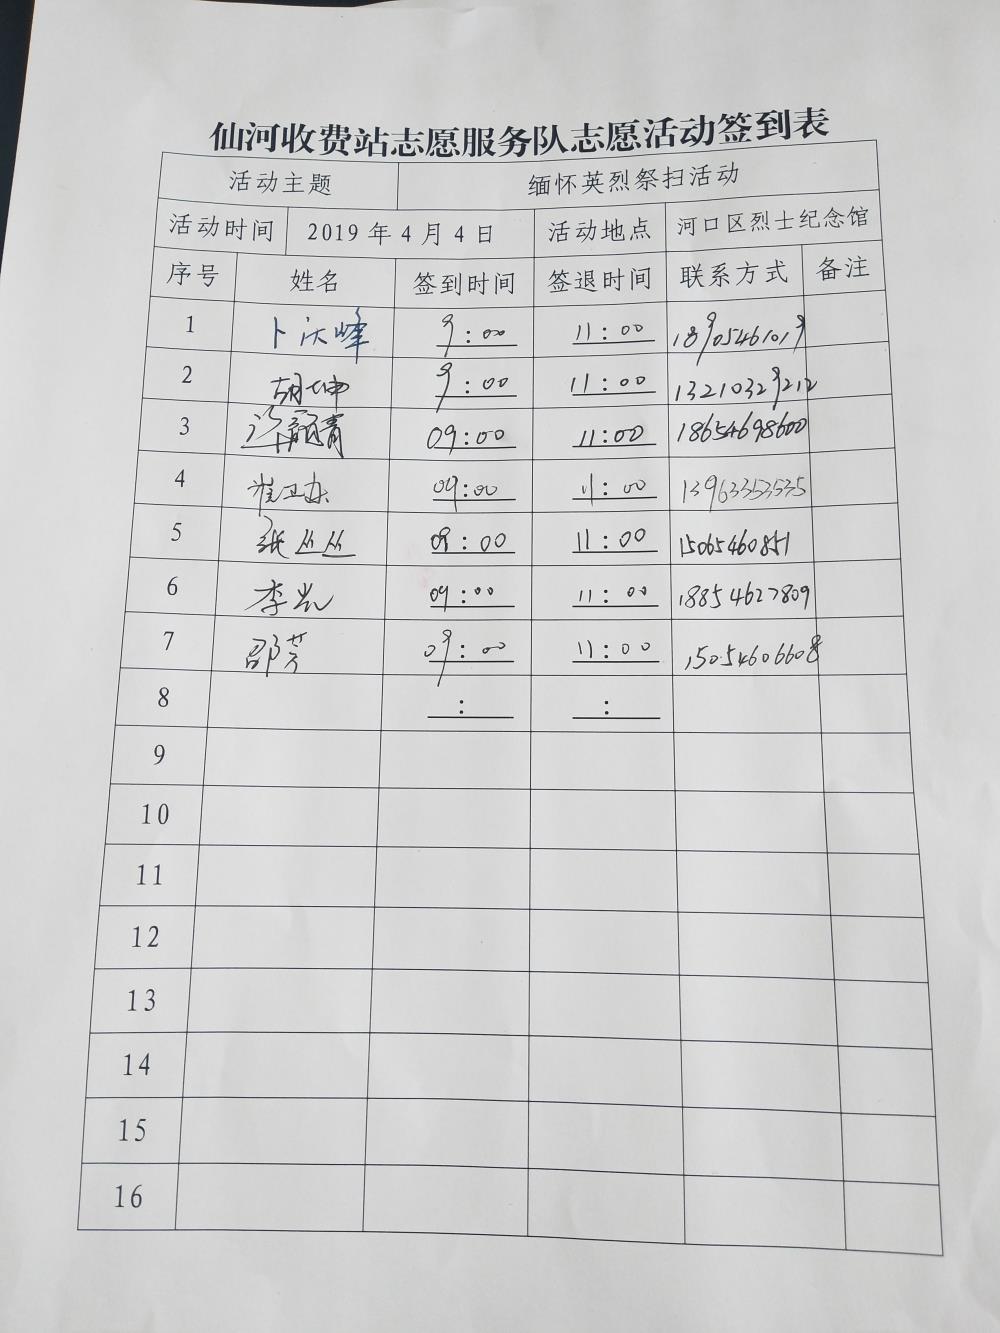 仙河收费站志愿服务队志愿活动签到表
活动主题 缅怀英烈祭扫活动
活动时间 2019 年 4 月 4 日 活动地点 河口区烈士纪念馆
序号 姓名 签到时间 签退时间 联系方式 备注
1 卜庆峰 9:00 11:00 18905461019
2 胡坤 9:00 11:00 13210329212
3 09:00 11:00 18654698600
4 09:00 11:00 13963353535
5 张丛丛 09:00 11:00 15065460851
6 09:00 11:00 18854627809
7 邵芳 09:00 11:00 15054606608
8 : :
9
10
11
12
13
14
15
16